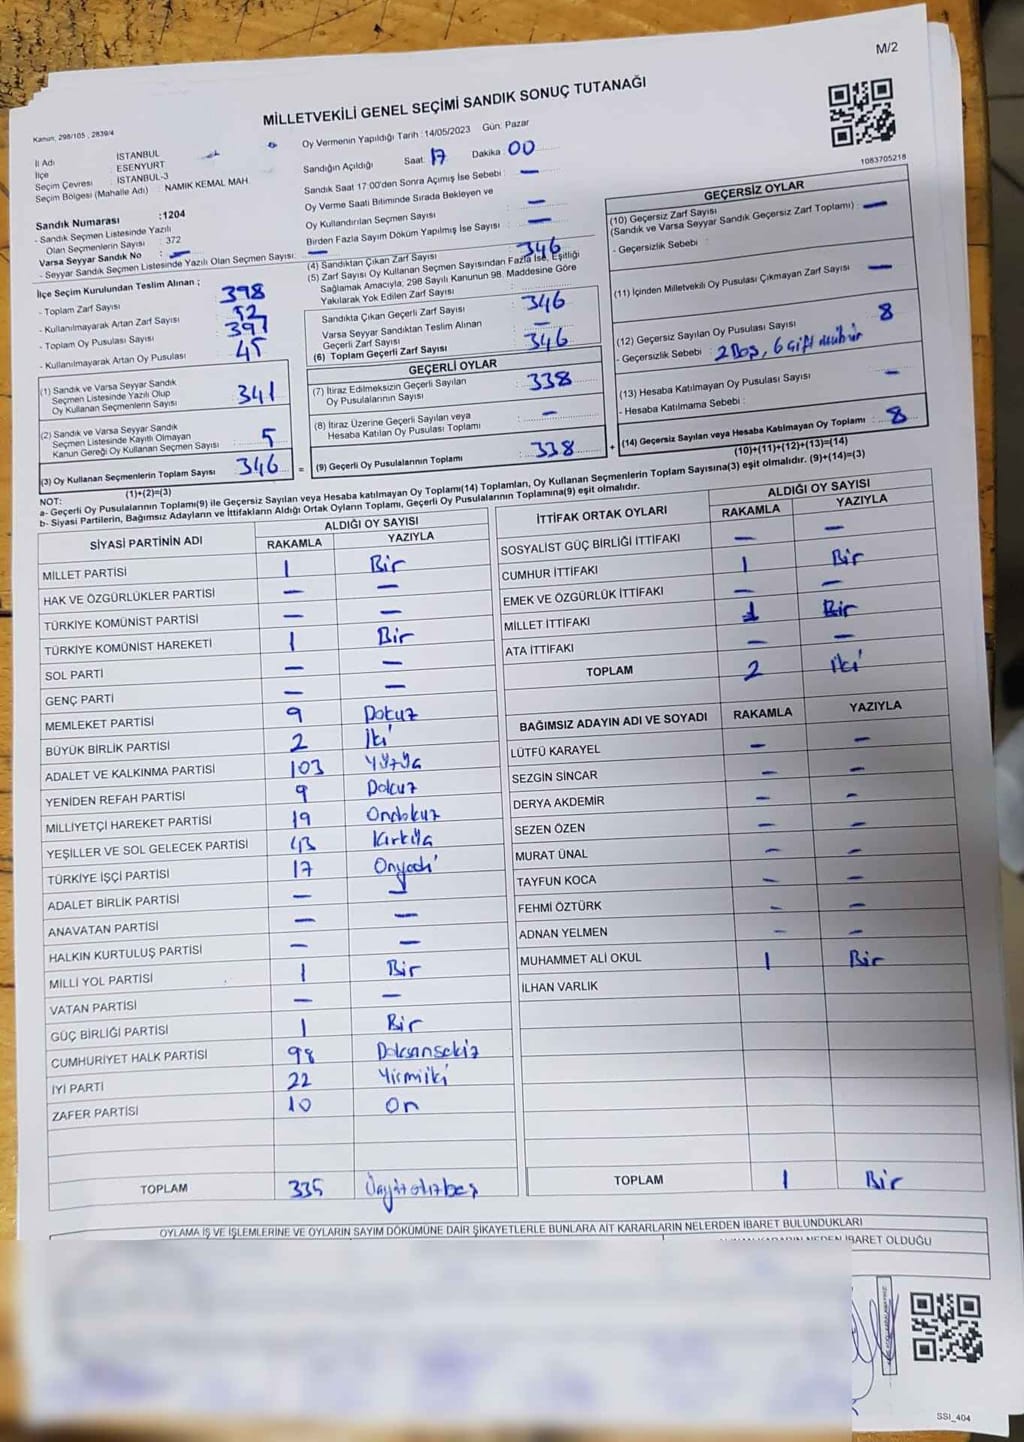 M/2
MİLLETVEKİLİ GENEL SEÇİMİ SANDIK SONUÇ TUTANAĞI
Kanun, 298/105 , 2839/4
1083705218
İl Adı İSTANBUL
İlçe ESENYURT
Seçim Çevresi İSTANBUL-3
Seçim Bölgesi (Mahalle Adı) : NAMIK KEMAL MAH.
Oy Vermenin Yapıldığı Tarih : 14/05/2023 Gün: Pazar
Sandığın Açıldığı Saat: 17 Dakika 00
Sandık Saat 17:00'den Sonra Açımış İse Sebebi : —
Oy Verme Saati Bitiminde Sırada Bekleyen ve
Oy Kullandırılan Seçmen Sayısı : —
Birden Fazla Sayım Döküm Yapılmış İse Sayısı : —
Sandık Numarası : 1204
- Sandık Seçmen Listesinde Yazılı
Olan Seçmenlerin Sayısı : 372
Varsa Seyyar Sandık No : —
- Seyyar Sandık Seçmen Listesinde Yazılı Olan Seçmen Sayısı: —
İlçe Seçim Kurulundan Teslim Alınan ;
- Toplam Zarf Sayısı : 398
- Kullanılmayarak Artan Zarf Sayısı : 52
- Toplam Oy Pusulası Sayısı : 391
- Kullanılmayarak Artan Oy Pusulası : 45
(1) Sandık ve Varsa Seyyar Sandık
Seçmen Listesinde Yazılı Olup
Oy Kullanan Seçmenlerin Sayısı : 341
(2) Sandık ve Varsa Seyyar Sandık
Seçmen Listesinde Kayıtlı Olmayan
Kanun Gereği Oy Kullanan Seçmen Sayısı : 5
(3) Oy Kullanan Seçmenlerin Toplam Sayısı 346
(1)+(2)=(3)
(4) Sandıktan Çıkan Zarf Sayısı : 346
(5) Zarf Sayısı Oy Kullanan Seçmen Sayısından Fazla İse, Eşitliği
Sağlamak Amacıyla, 298 Sayılı Kanunun 98. Maddesine Göre
Yakılarak Yok Edilen Zarf Sayısı :
Sandıkta Çıkan Geçerli Zarf Sayısı : 346
Varsa Seyyar Sandıktan Teslim Alınan
Geçerli Zarf Sayısı : —
(6) Toplam Geçerli Zarf Sayısı : 346
GEÇERLİ OYLAR
(7) İtiraz Edilmeksizin Geçerli Sayılan
Oy Pusulalarının Sayısı : 338
(8) İtiraz Üzerine Geçerli Sayılan veya
Hesaba Katılan Oy Pusulası Toplamı : —
= (9) Geçerli Oy Pusulalarının Toplamı : 338 +
GEÇERSİZ OYLAR
(10) Geçersiz Zarf Sayısı
(Sandık ve Varsa Seyyar Sandık Geçersiz Zarf Toplamı) : —
- Geçersizlik Sebebi :
(11) İçinden Milletvekili Oy Pusulası Çıkmayan Zarf Sayısı : —
(12) Geçersiz Sayılan Oy Pusulası Sayısı : 8
- Geçersizlik Sebebi : 2 Boş, 6 Çift mühür
(13) Hesaba Katılmayan Oy Pusulası Sayısı : —
- Hesaba Katılmama Sebebi :
(14) Geçersiz Sayılan veya Hesaba Katılmayan Oy Toplamı : 8
(10)+(11)+(12)+(13)=(14)
NOT:
a- Geçerli Oy Pusulalarının Toplamı(9) ile Geçersiz Sayılan veya Hesaba katılmayan Oy Toplamı(14) Toplamları, Oy Kullanan Seçmenlerin Toplam Sayısına(3) eşit olmalıdır. (9)+(14)=(3)
b- Siyasi Partilerin, Bağımsız Adayların ve İttifakların Aldığı Ortak Oyların Toplamı, Geçerli Oy Pusulalarının Toplamına(9) eşit olmalıdır.
SİYASİ PARTİNİN ADI ALDIĞI OY SAYISI
RAKAMLA YAZIYLA
MİLLET PARTİSİ 1 Bir
HAK VE ÖZGÜRLÜKLER PARTİSİ — —
TÜRKİYE KOMÜNİST PARTİSİ — —
TÜRKİYE KOMÜNİST HAREKETİ 1 Bir
SOL PARTİ — —
GENÇ PARTİ — —
MEMLEKET PARTİSİ 9 Dokuz
BÜYÜK BİRLİK PARTİSİ 2 İki
ADALET VE KALKINMA PARTİSİ 103
YENİDEN REFAH PARTİSİ 9 Dokuz
MİLLİYETÇİ HAREKET PARTİSİ 19 Ondokuz
YEŞİLLER VE SOL GELECEK PARTİSİ 43
TÜRKİYE İŞÇİ PARTİSİ 17 Onyedi
ADALET BİRLİK PARTİSİ — —
ANAVATAN PARTİSİ — —
HALKIN KURTULUŞ PARTİSİ — —
MİLLİ YOL PARTİSİ 1 Bir
VATAN PARTİSİ — —
GÜÇ BİRLİĞİ PARTİSİ 1 Bir
CUMHURİYET HALK PARTİSİ 98 Doksansekiz
İYİ PARTİ 22 Yirmiiki
ZAFER PARTİSİ 10 On
TOPLAM 335 Üçyüzotuzbeş
İTTİFAK ORTAK OYLARI ALDIĞI OY SAYISI
RAKAMLA YAZIYLA
SOSYALİST GÜÇ BİRLİĞİ İTTİFAKI — —
CUMHUR İTTİFAKI 1 Bir
EMEK VE ÖZGÜRLÜK İTTİFAKI — —
MİLLET İTTİFAKI 1 Bir
ATA İTTİFAKI — —
TOPLAM 2 İki
BAĞIMSIZ ADAYIN ADI VE SOYADI RAKAMLA YAZIYLA
LÜTFÜ KARAYEL — —
SEZGİN SİNCAR — —
DERYA AKDEMİR — —
SEZEN ÖZEN — —
MURAT ÜNAL — —
TAYFUN KOCA — —
FEHMİ ÖZTÜRK — —
ADNAN YELMEN — —
MUHAMMET ALİ OKUL 1 Bir
İLHAN VARLIK
TOPLAM 1 Bir
OYLAMA İŞ VE İŞLEMLERİNE VE OYLARIN SAYIM DÖKÜMÜNE DAİR ŞİKAYETLERLE BUNLARA AİT KARARLARIN NELERDEN İBARET BULUNDUKLARI
İBARET OLDUĞU
SSI_404